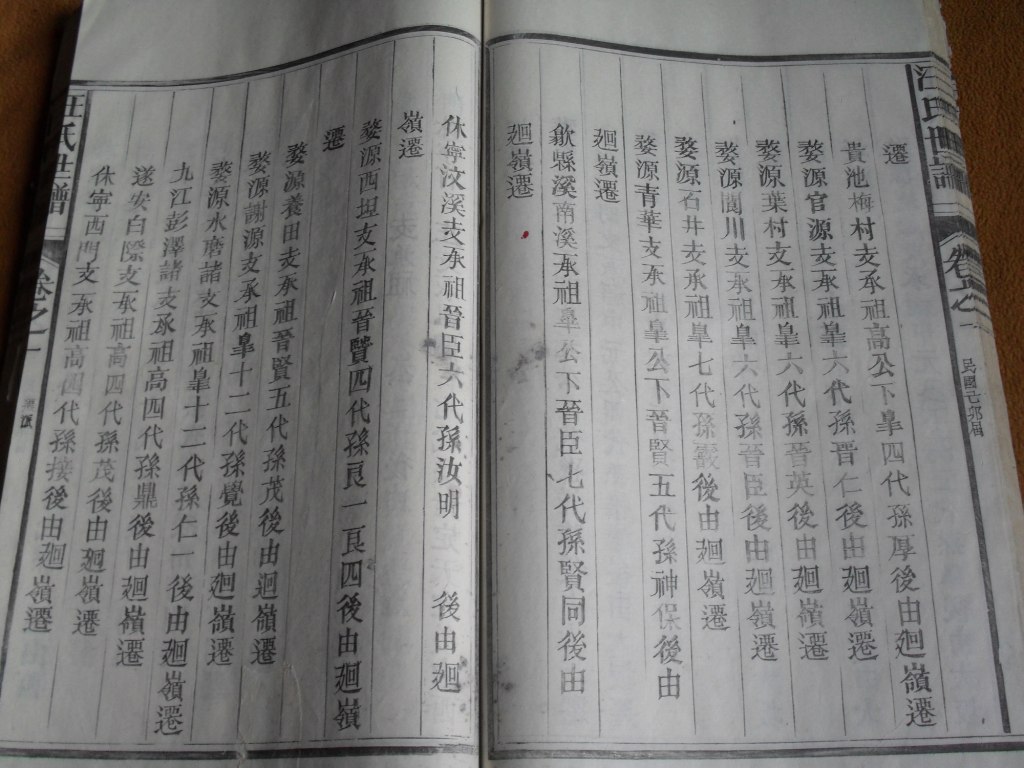 汪氏世譜 卷之一 民國己卯届
遷
貴池梅村支承祖高公下皐四代孫厚後由廻嶺遷
婺源官源支承祖皐六代孫晉仁後由廻嶺遷
婺源葉村支承祖皐六代孫晉英後由廻嶺遷
婺源閬川支承祖皐六代孫晉臣後由廻嶺遷
婺源石井支承祖皐七代孫嚴後由廻嶺遷
婺源青華支承祖皐公下晉賢五代孫神保後由
廻嶺遷
歙縣溪南溪承祖皐公下晉臣七代孫賢同後由
廻嶺遷
休寧汶溪支承祖晉臣六代孫汝明 後由廻
嶺遷
婺源西坦支承祖晉賢四代孫良一良四後由廻嶺
遷
婺源養田支承祖晉賢五代孫茂後由廻嶺遷
婺源謝源支承祖皐十二代孫覺後由廻嶺遷
婺源水磨諸支承祖皐十二代孫仁一後由廻嶺遷
九江彭澤諸支承祖高四代孫鼎後由廻嶺遷
遂安白際支承祖高四代孫茂後由廻嶺遷
休寧西門支承祖高四代孫接後由廻嶺遷
汪氏世譜 卷之一